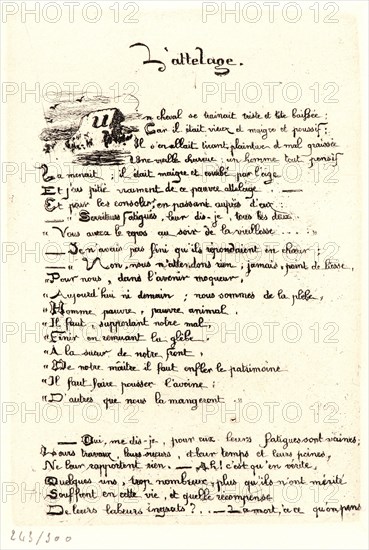 L'attelage.
Un cheval se trainait triste et tête baissée ;
Car il était vieux et maigre et poussif ;
Il s'en allait tirant, plaintive et mal graissée
Une vieille charrue ; un homme tout pensif
La menait ; il était maigre et courbé par l'âge
Et j'eus pitié vraiment de ce pauvre attelage . —
Et pour les consoler, en passant auprès d'eux :
— " Serviteurs fatigués, leur dis-je, tous les deux
" Vous aurez le repos au soir de la vieillesse ... "
— Je n'avais pas fini qu'ils répondaient en chœur ;
— " Non, nous n'attendons rien ; jamais, point de liesse,
" Pour nous, dans l'avenir moqueur,
" Aujourd'hui ni demain ; nous sommes de la plèbe,
" Homme pauvre, pauvre animal,
" Il faut, supportant notre mal,
" Finir en remuant la glèbe.
" A la sueur de notre front,
" De notre maître il faut enfler le patrimoine
" Il faut faire pousser l'avoine ;
" D'autres que nous la mangeront "
— Oui, me dis-je, pour eux leurs fatigues sont vaines ;
Leurs travaux, leurs sueurs, et leur temps et leurs peines,
Ne leur rapportent rien. — Ah ! c'est qu'en vérité,
Quelques uns, trop nombreux, plus qu'ils n'ont mérité
Souffrent en cette vie, et quelle récompense
De leurs labeurs ingrats ? .. — La mort, à ce qu'on pense
243/300
PHOTO12